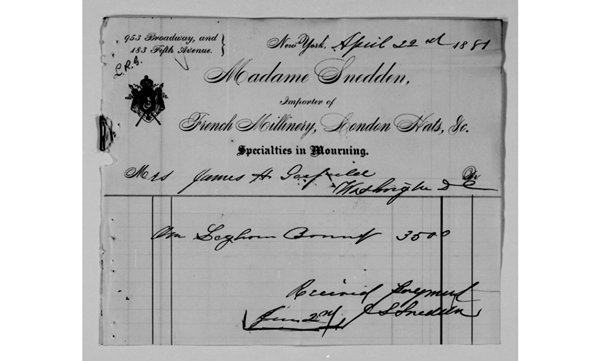 953 Broadway, and
183 Fifth Avenue.
New York, April 22nd 1881
L.R.G.
Madame Snedden,
Importer of
French Millinery, London Hats, &c.
Specialties in Mourning.
Mrs James A Garfield Dr
Washington D C
One Leghorn Bonnet 35 00
Received Payment
June 2nd J S Snedden